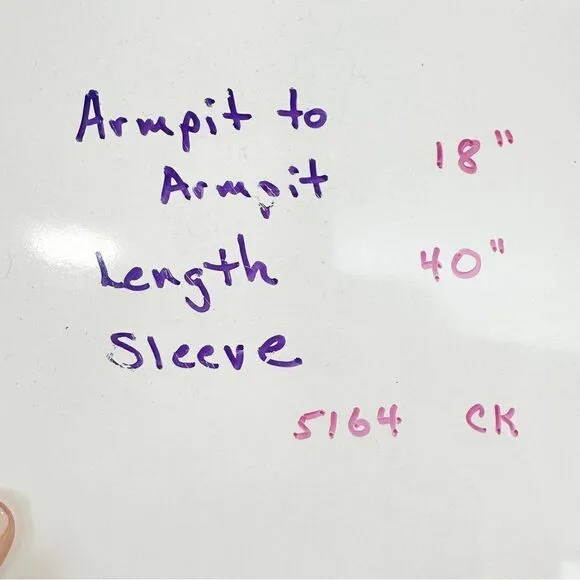 Armpit to
Armpit 18"
Length 40"
Sleeve
5164 CK